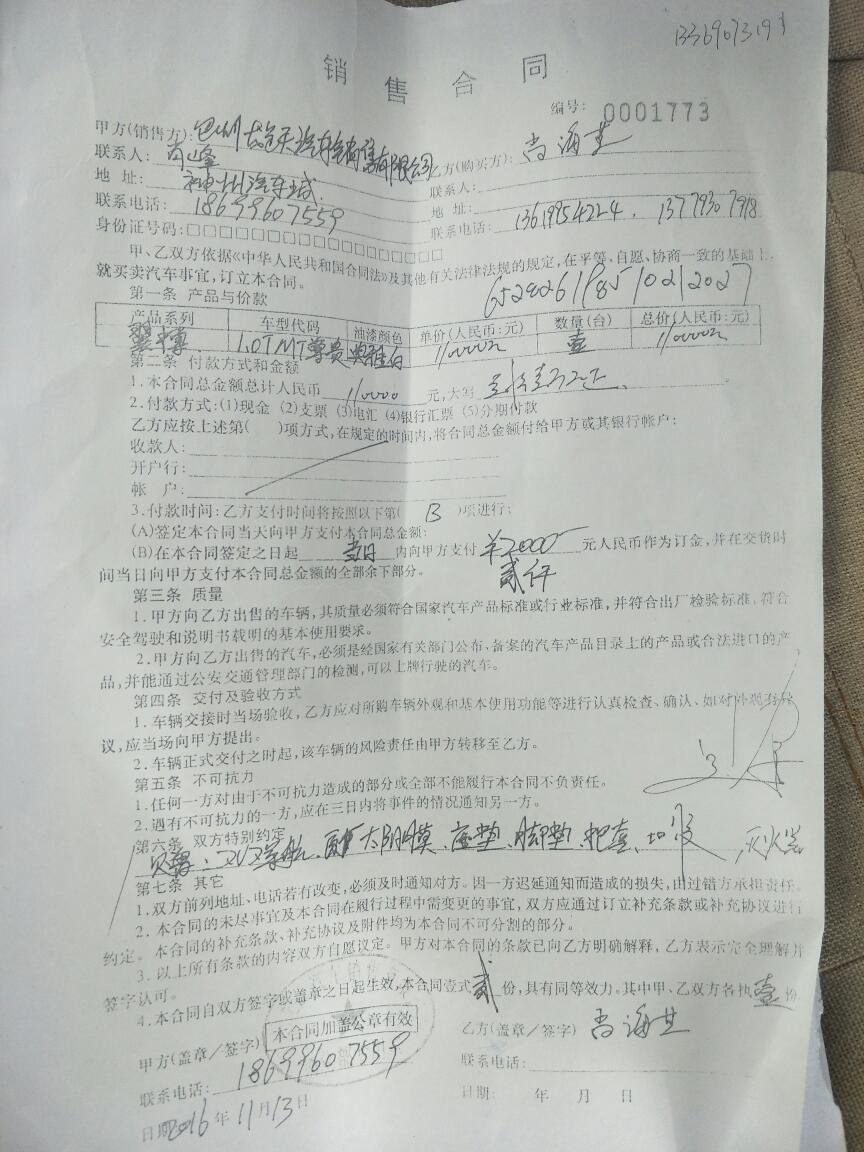 1336907319
销售合同
编号: 0001773
甲方(销售方): 汽车销售有限公司 乙方(购买方): 尚海
联系人: 肖峰 联系人:
地 址: 神州汽车城 地 址:
联系电话: 18699607559 联系电话: 13619954224 . 13779307918
身份证号码:□□□□□□□□□□□□□□□□□□
甲、乙双方依据《中华人民共和国合同法》及其他有关法律法规的规定,在平等、自愿、协商一致的基础上,
就买卖汽车事宜,订立本合同。
652826198510212027
第一条 产品与价款
产品系列 车型代码 油漆颜色 单价(人民币:元) 数量(台) 总价(人民币:元)
翼搏 1.0T MT尊贵 典雅白 110000 壹 110000
第二条 付款方式和金额
1.本合同总金额总计人民币 110000 元,大写 壹拾壹万元正 。
2.付款方式:(1)现金 (2)支票 (3)电汇 (4)银行汇票 (5)分期付款
乙方应按上述第( )项方式,在规定的时间内,将合同总金额付给甲方或其银行帐户:
收款人:
开户行:
帐 户:
3.付款时间:乙方支付时间将按照以下第( B )项进行;
(A)签定本合同当天向甲方支付本合同总金额:
(B)在本合同签定之日起 当日 内向甲方支付 ¥2000 元人民币作为订金,并在交货时
贰仟
间当日向甲方支付本合同总金额的全部余下部分。
第三条 质量
1.甲方向乙方出售的车辆,其质量必须符合国家汽车产品标准或行业标准,并符合出厂检验标准,符合
安全驾驶和说明书载明的基本使用要求。
2.甲方向乙方出售的汽车,必须是经国家有关部门公布、备案的汽车产品目录上的产品或合法进口的产
品,并能通过公安交通管理部门的检测,可以上牌行驶的汽车。
第四条 交付及验收方式
1.车辆交接时当场验收,乙方应对所购车辆外观和基本使用功能等进行认真检查、确认、如对外观有异
议,应当场向甲方提出。
2.车辆正式交付之时起,该车辆的风险责任由甲方转移至乙方。
第五条 不可抗力
1.任何一方对由于不可抗力造成的部分或全部不能履行本合同不负责任。
2.遇有不可抗力的一方,应在三日内将事件的情况通知另一方。
第六条 双方特别约定
导航、太阳膜、座垫、脚垫、把套、 灭火器
第七条 其它
1.双方前列地址、电话若有改变,必须及时通知对方。因一方迟延通知而造成的损失,由过错方承担责任。
2.本合同的未尽事宜及本合同在履行过程中需变更的事宜,双方应通过订立补充条款或补充协议进行
约定。本合同的补充条款、补充协议及附件均为本合同不可分割的部分。
3.以上所有条款的内容双方自愿议定。甲方对本合同的条款已向乙方明确解释,乙方表示完全理解并
签字认可。
4.本合同自双方签字或盖章之日起生效,本合同壹式 贰 份,具有同等效力。其中甲、乙双方各执 壹 份
本合同加盖公章有效
甲方(盖章/签字) 乙方(盖章/签字) 尚海
联系电话: 18699607559 联系电话:
日期: 2016年11月13日 日期: 年 月 日